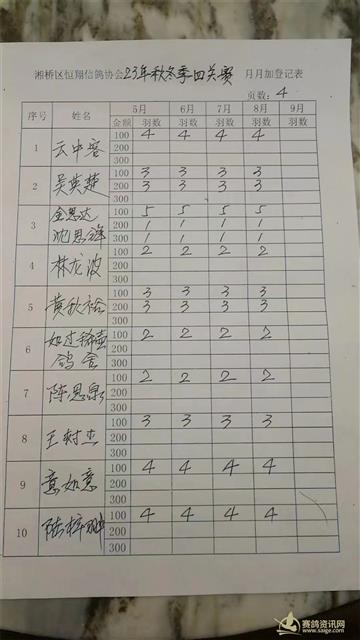 湘桥区恒翔信鸽协会23年秋冬季四关赛 月月加登记表
页数：4
序号 姓名 5月 6月 7月 8月 9月
金额 羽数 羽数 羽数 羽数 羽数
1 云中客 100 4 4 4 4
200
300
2 吴英楚 100 3 3 3 3
200 3 3 3 3
300
3 金思达 100 5 5 5 5
沈思锋 200 1 1 1 1
300 1 1 1 1
4 林龙波 100 2 2 2 2
200
300
5 黄秋裕 100 3 3 3 3
200 3 3 3 3
300
6 如过 100 2 2 2 2
鸽舍 200
300
7 陈思泉 100 2 2 2 2
200
300
8 王树杰 100 3 3 3 3
200
300
9 意如意 100 4 4 4 4
200
300
10 陆梓 100 4 4 4 4
200
300
赛鸽资讯网
www.saige.com